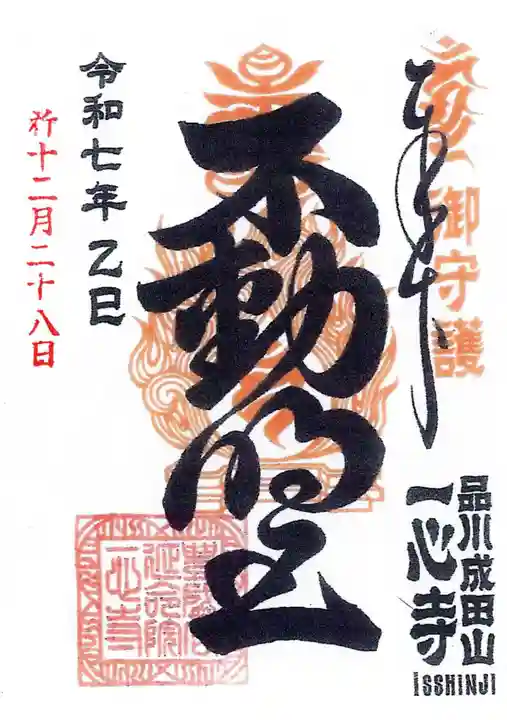 奉拝
御守護
不動明王
令和七年 乙巳
於十二月二十八日
品川成田山
一心寺
ISSHINJI
延命院
一心寺